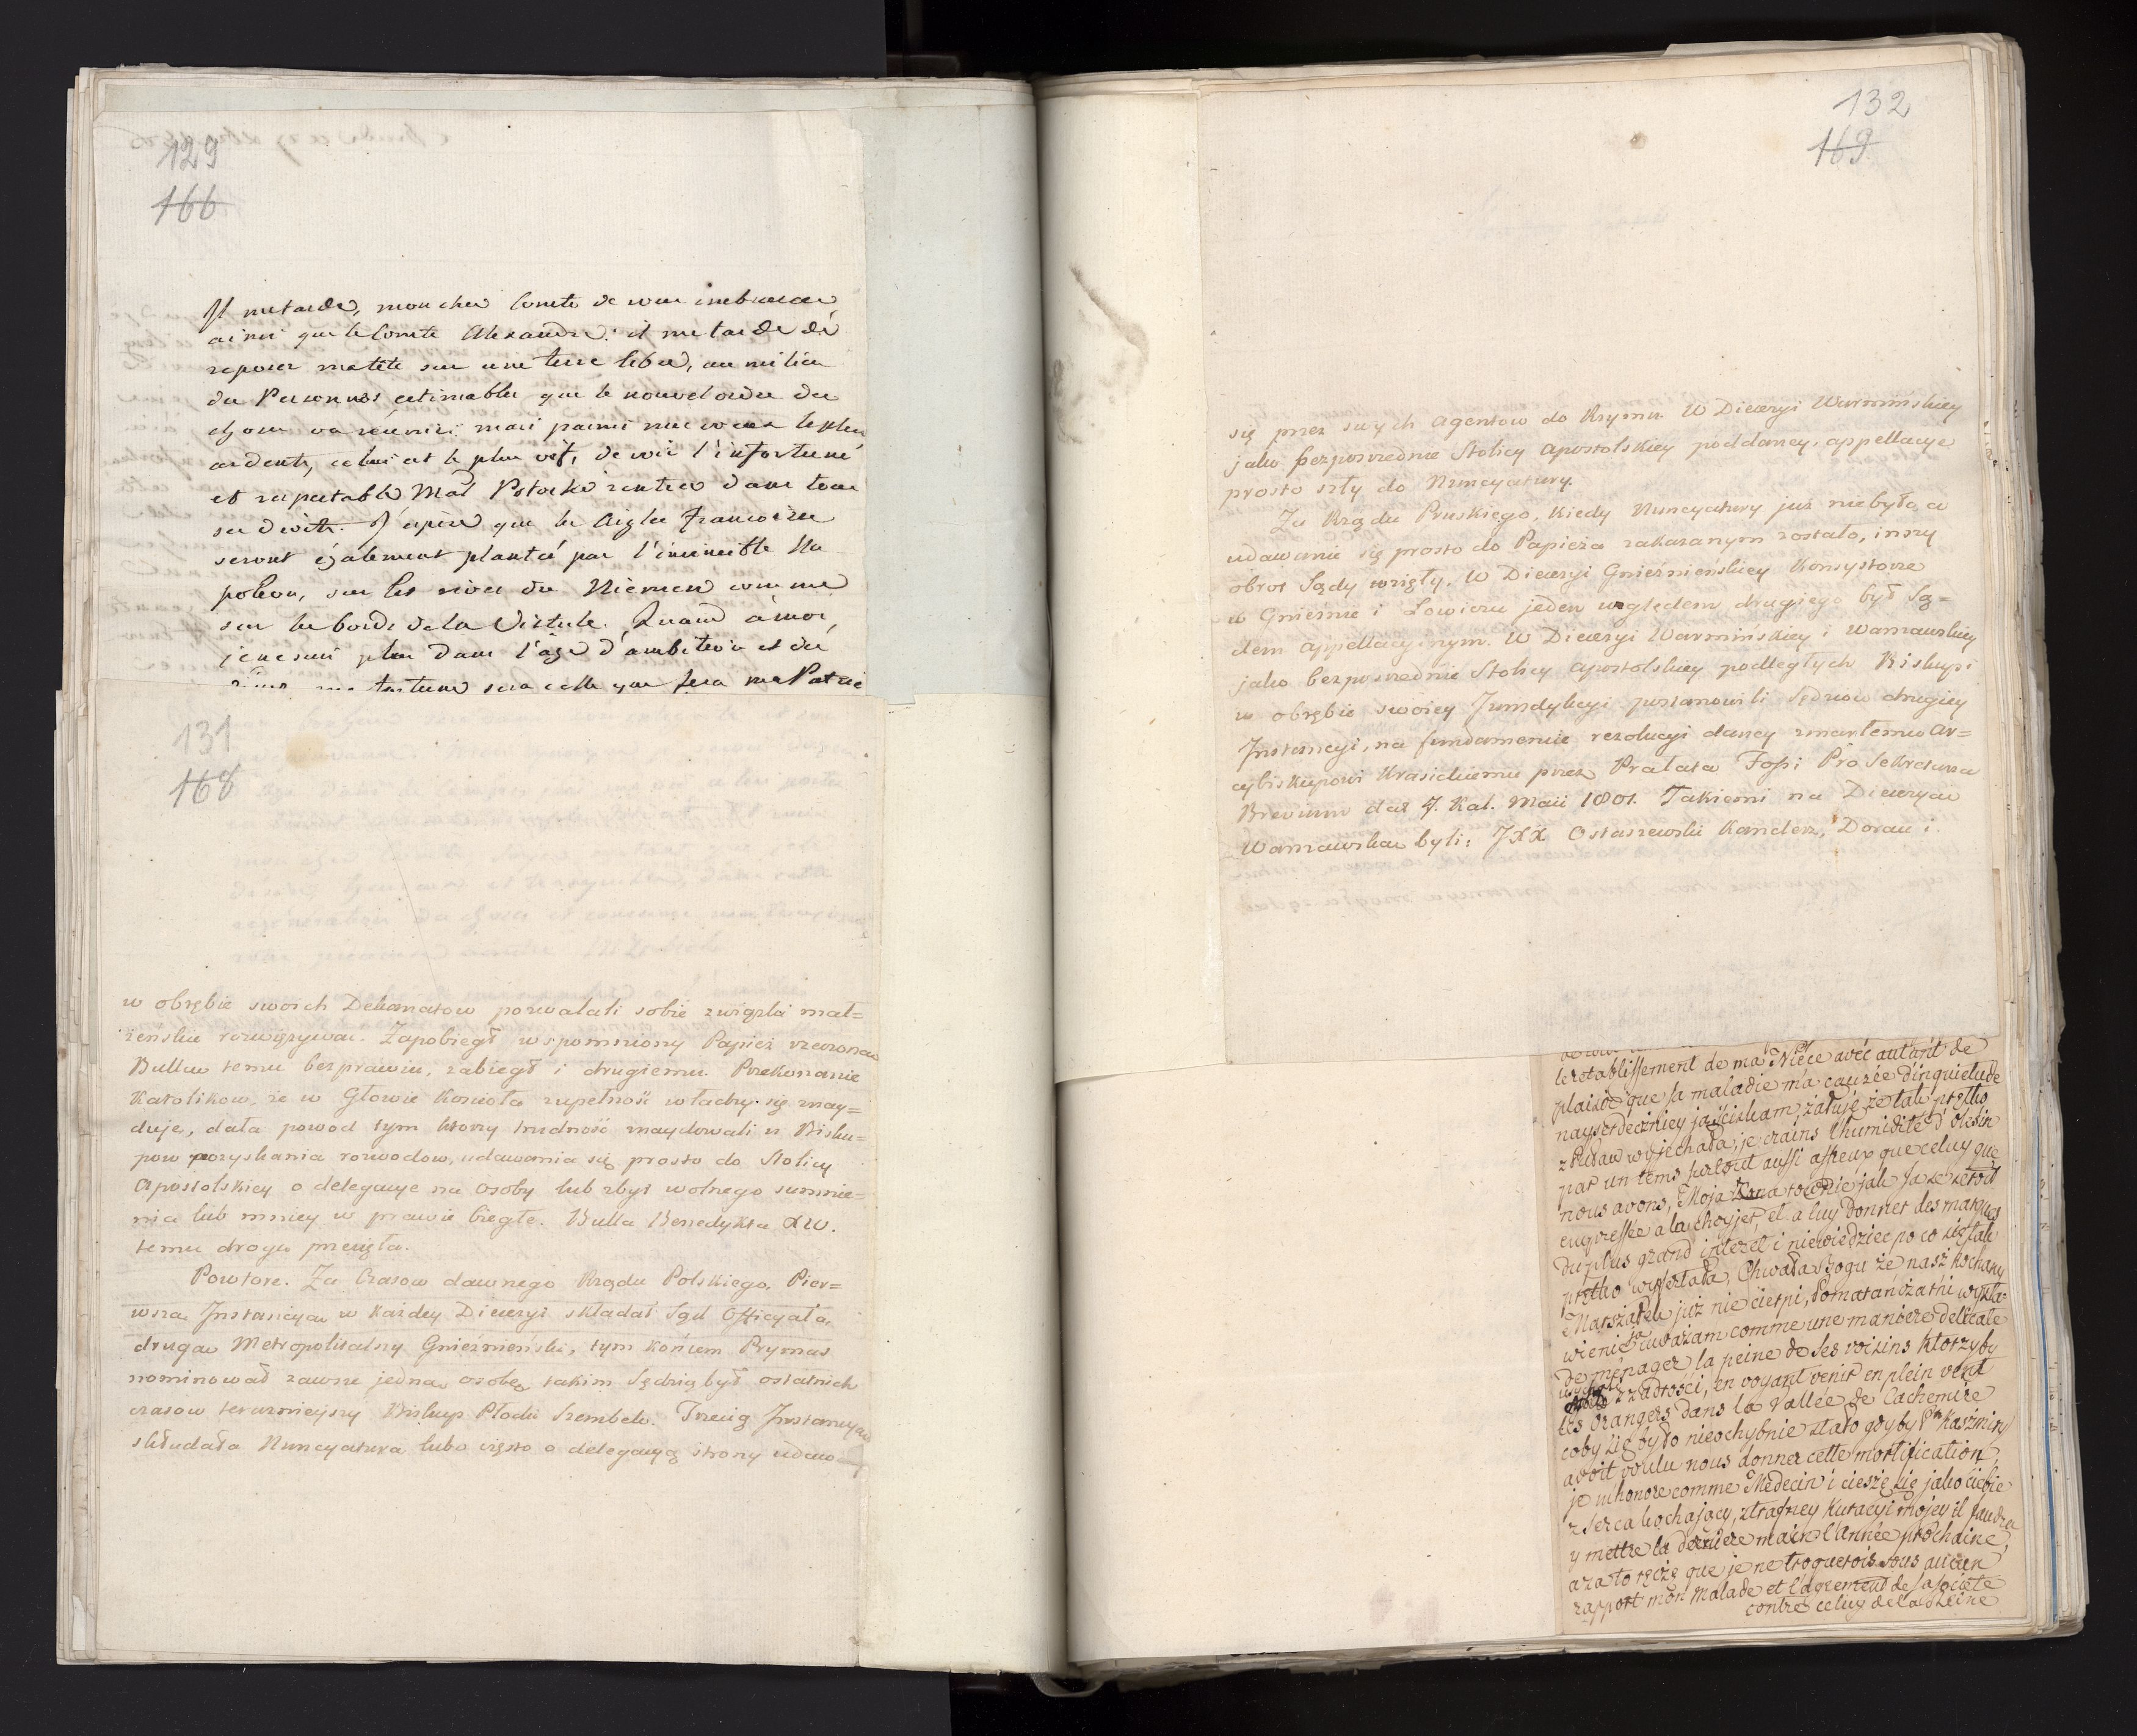 129
166
Il me tarde, mon cher Comte de vous embrasser
ainsi que le Comte Alexandre: il me tarde de
reposer ma tête sur une terre libre, au milieu
des Personnes estimables que le nouvel ordre des
choses va réunir: mais parmi mes vœux les plus
ardents, celui est le plus vif, de voir l'infortuné
et respectable Mal Potocki rentrer dans tous
ses droits. J'espère que les Aigles Françoises
seront également plantés par l'invincible Na
poleon, sur les rives du Niemen comme
sur les bords de la Vistule. Quand à moi,
je ne suis plus dans l'âge d'ambition et du
ma fortune sera celle que fera ma Patrie
131
168
w obrębie swoich Dekanatow pozwalali sobie związki mał=
żeńskie rozwięzywać. Zapobiegł wspomniony Papież rzeczoną
Bullą temu bezprawiu, zabiegł i drugiemu. Przekonanie
Katolikow, że w Głowie Kościoła zupełność władzy się znay=
duje, dała powod tym ktorzy trudność znaydowali u Bisku=
pow pozyskania rozwodow, udawania się prosto do Stolicy
Apostolskiey o delegacye na osoby lub zbyt wolnego sumnie=
nia lub mniey w prawie biegłe. Bulla Benedykta XIV.
temu droga przecięła.
Powtore. Za Czasow dawnego Rządu Polskiego, Pier=
wszą Instancyą w każdey Diecezyi składał Sąd Officyała,
drugą Metropolitalny Gnieźnieński, tym końcem Prymas
nominował zawsze jedną osobę, takim Sędzią był ostatnich
czasow teraznieyszy Biskup Płocki Szembek. Trzecią Instancyą
składała Nuncyatura lubo często o delegacyą strony udaw
132
169
się przez swych agentow do Rzymu. W Diecezyi Warmińskiey
jako bezposrednie Stolicy Apostolskiey poddaney, appellacye
prosto szły do Nuncyatury.
Za Rządu Pruskiego, kiedy Nuncyatury już niebyło, a
udawanie się prosto do Papieża zakazanym zostało, inszy
obrot Sądy wzięły. W Diecezyi Gnieźnieńskiey Konsystorze
w Gnieźnie i Łowiczu jeden względem drugiego był Są=
dem appellacyinym. W Diecezyi Warmińskiey i Warszawskiey
jako bezposrednie Stolicy apostolskiey podległych Biskupi
w obrębie swoiey Jurisdykcyi postanowili Sędziow drugiey
Instancyi, na fundamencie rezolucyi daney zmarłemu Ar=
cybiskupowi Krasickiemu przez Prałata Fossi Pro Sekretarza
Brevium dat 7. Kal. Maii 1801. Takiemi na Diecezyą
Warszawską byli: JXX Ostaszewski Kanclerz, Doran i
le retablissement de ma Niéce avec autant de
plaisir que sa maladie m'a causée d'inquietude
nayserdeczniey ją ściskam, żałuję że tak prętko
z Puław wyjechała, je crains l'humidité d'Olesin
par un tems surtout aussi affreux que celuy que
nous avons, Moja Żona rownie jak Ja se seroit
empressée a la choyjer, et a luy donner des marques
du plus grand interet i niewiedziec po co się tak
prętko wyszrtała, Chwała Bogu że nasz kochany
Marszałek już nie cierpi, Pomarańczarni wysta=
wienie uważam comme une maniere delicate
de ménager la peine de ses voisins ktorzyby
z zadrości, en voyant venir en plein vent
les Orangers dans la vallée de Cachemire
coby się było nieochybnie stało gdyby Pn Kaźmirz
avoit voulu nous donner cette mortification,
je m'honore comme Médecin i cieszę się jako Ciebie
z serca kochający, z trafney Kuracyi mojey il faudra
y mettre la derniere main l'Année prochaine,
a za to ręczę que je ne troquerois sous aucun
rapport mon Malade et l'agrement de sa societé
contre celuy de la Reine